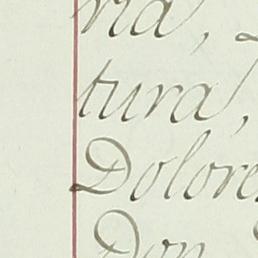 ria,
tura,
Dolores
Don